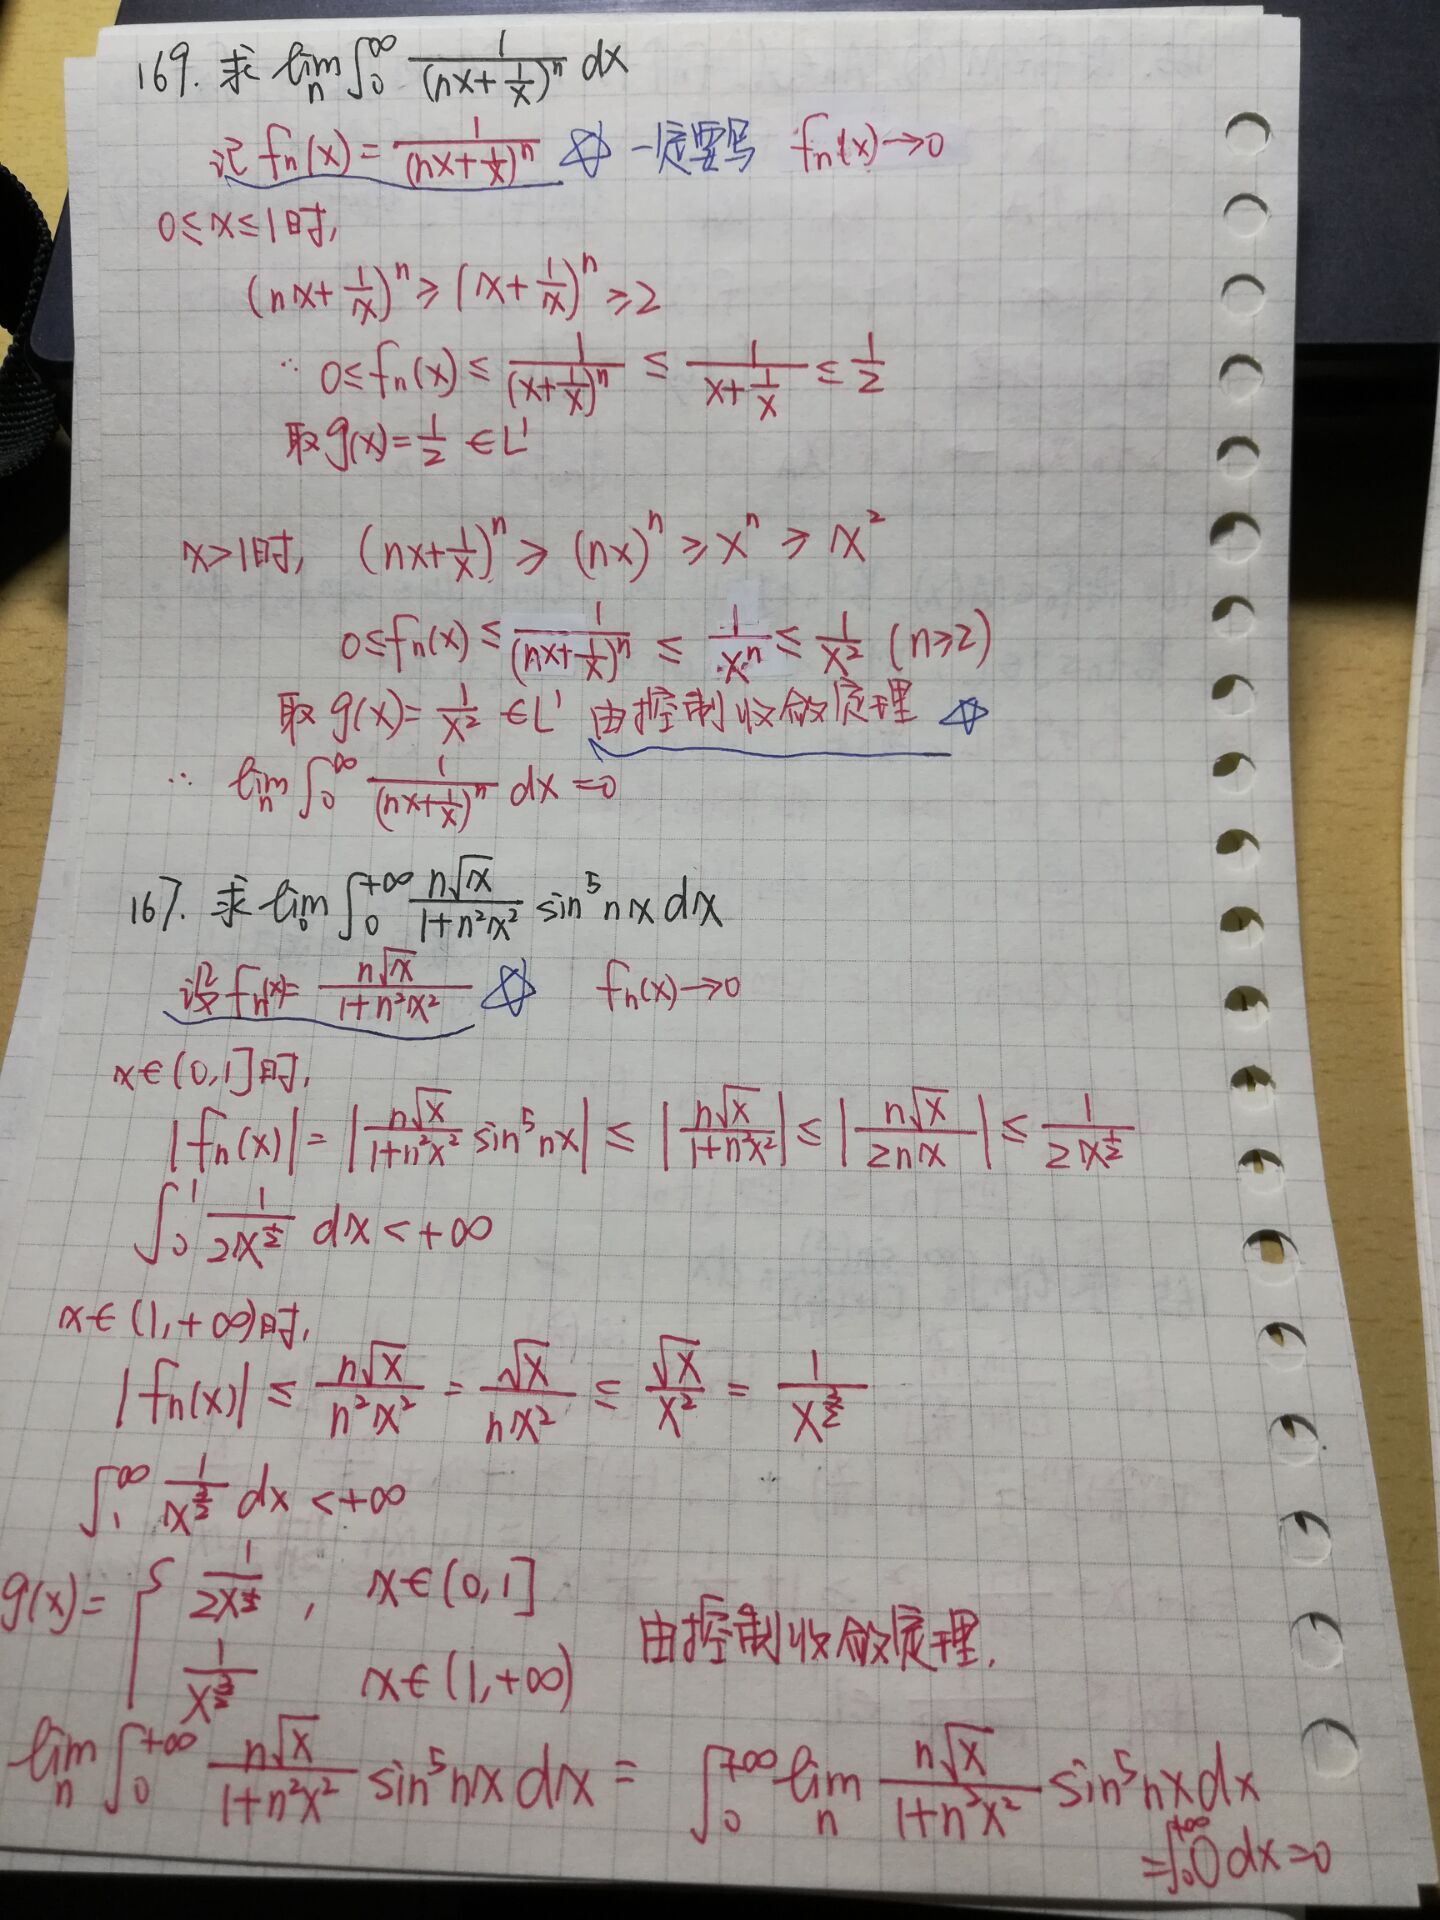 169. 求 lim_n ∫_0^∞ 1/(nx+1/x)^n dx
记 f_n(x) = 1/(nx+1/x)^n ☆ 一定要写 f_n(x)→0
0≤x≤1时,
(nx+1/x)^n ≥ (x+1/x)^n ≥2
∵ 0≤f_n(x) ≤ 1/(x+1/x)^n ≤ 1/(x+1/x) ≤ 1/2
取 g(x)=1/2 ∈L^1
x>1时, (nx+1/x)^n ≥ (nx)^n ≥ x^n ≥ x^2
0≤f_n(x) ≤ 1/(nx+1/x)^n ≤ 1/x^n ≤ 1/x^2 (n≥2)
取 g(x)= 1/x^2 ∈L^1 由控制收敛定理 ☆
∴ lim_n ∫_0^∞ 1/(nx+1/x)^n dx =0
167. 求 lim ∫_0^{+∞} n√x/(1+n^2x^2) sin^5 nx dx
设 f_n(x)= n√x/(1+n^2x^2) ☆ f_n(x)→0
x∈(0,1]时,
|f_n(x)| = |n√x/(1+n^2x^2) sin^5 nx| ≤ |n√x/(1+n^2x^2)| ≤ |n√x/(2nx)| ≤ 1/(2x^{1/2})
∫_0^1 1/(2x^{1/2}) dx < +∞
x∈(1,+∞)时,
|f_n(x)| ≤ n√x/(n^2x^2) = √x/(nx^2) ≤ √x/x^2 = 1/x^{3/2}
∫_1^∞ 1/x^{3/2} dx <+∞
g(x)= { 1/(2x^{1/2}) , x∈(0,1]
1/x^{3/2} x∈(1,+∞) 由控制收敛定理.
lim_n ∫_0^{+∞} n√x/(1+n^2x^2) sin^5 nx dx = ∫_0^{+∞} lim_n n√x/(1+n^2x^2) sin^5 nx dx
=∫_0^{+∞} 0 dx =0